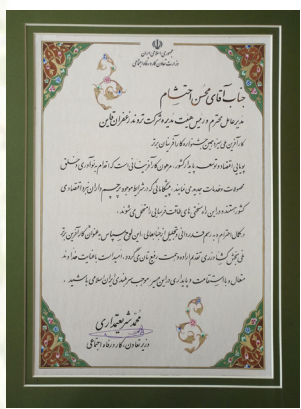 جمهوری اسلامی ایران
وزارت تعاون، کار و رفاه اجتماعی
جناب آقای محسن احتشام
مدیرعامل محترم و رئیس هیئت مدیره شرکت تروند زعفران قاین
کارآفرین ملی سیزدهمین جشنواره کارآفرینان برتر
پویایی اقتصاد و توسعه پایدار کشور، مرهون کارآفرینانی است که اقدام به نوآوری و خلق
محصولات و خدمات جدید می نمایند. پیشگامانی که در شرایط موجود پرچم داران نبرد اقتصادی
کشور هستند و در این راه سختی های طاقت فرسایی را متحمل می شوند.
در کمال احترام به رسم قدردانی و تجلیل از جنابعالی، این لوح سپاس به عنوان کارآفرین برتر
ملی بخش کشاورزی تقدیم اراده و همت رفیع تان می گردد. امید است با عنایت خداوند
متعال و با استقامت و پایداری در این مسیر موجب سربلندی ایران اسلامی باشید.
محمد شریعتمداری
وزیر تعاون، کار و رفاه اجتماعی